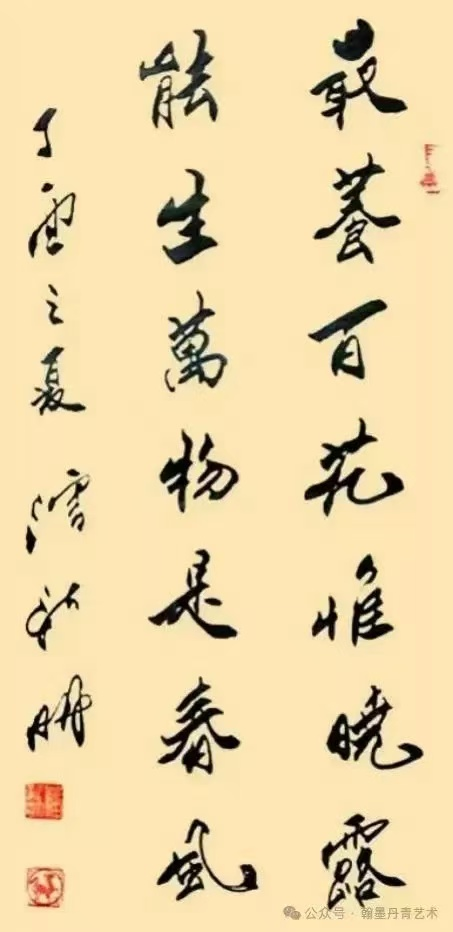 最養百花惟曉露
能生萬物是春風
丁酉之夏
公众号 · 翰墨丹青艺术